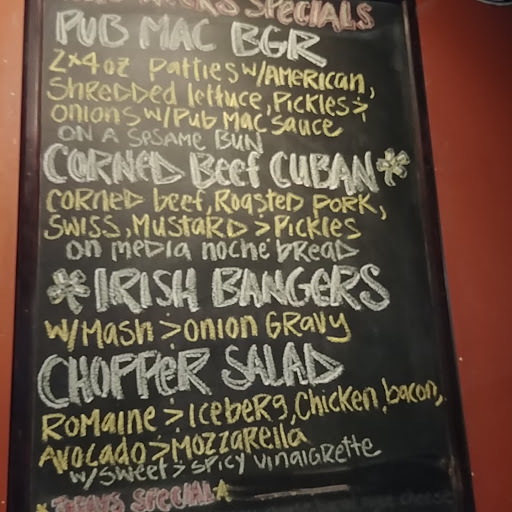 SPECIALS
PUB MAC BGR
2x4oz patties w/AMERICAN,
SHREDDED lettuce, Pickles &
onions w/Pub Mac sauce
ON A SESAME BUN
CORNED Beef CUBAN
CORNED beef, ROASTED PORK,
SWISS, MUSTARD & Pickles
on media noche bread
IRISH BANGERS
w/Mash & onion GRavy
CHOPPER SALAD
ROMAINE & Iceberg, Chicken, bacon,
AVOCADO & MOZZARella
w/sweet & spicy vinaigrette
SPECIAL